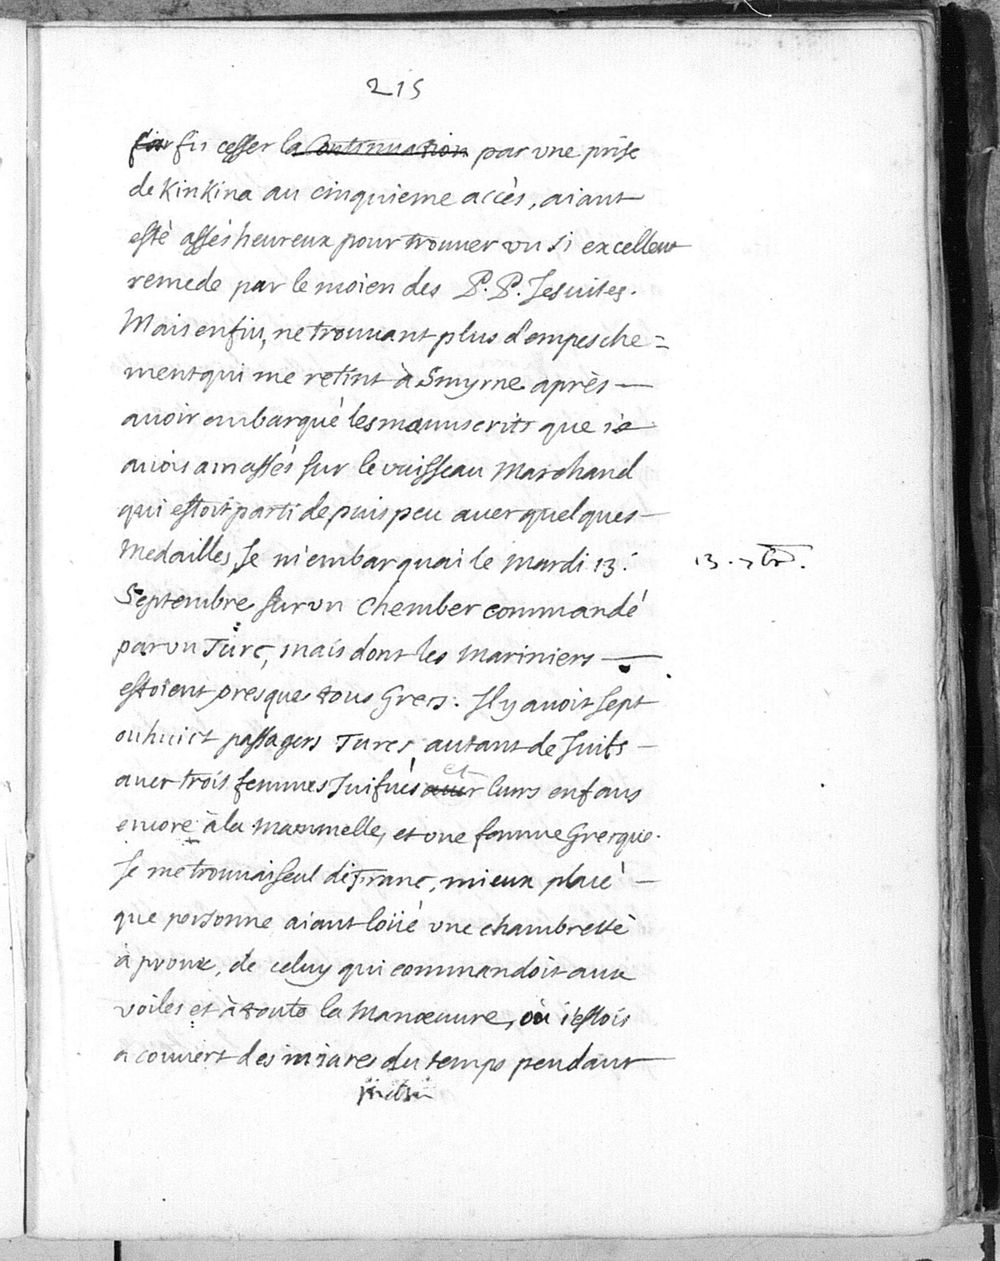 215
fis cesser la continuation par vne prise
de KinKina au cinquieme accès, aiant
esté assés heureux pour trouuer vn si excellent
remede par le moien des P. P. Jesuites.
Mais enfin, ne trouuant plus d'empesche=
ment qui me retint à Smyrne après —
auoir embarqué les manuscrits que ie
auois amassés sur le vaisseau Marchand
qui estoit parti depuis peu auec quelques —
Medailles, Je m'embarquai le Mardi 13.
13. 7br.
Septembre sur vn Chember commandé
par vn Turc, mais dont les Mariniers —
estoient presque tous Grecs. Il y auoit sept
ou huict passagers Turcs, autant de Juifs —
et
auec trois femmes Juifues auec leurs enfans
encore à la Mammelle, et vne femme Grecque.
Je me trouuai seul de Franc, mieux placé —
que personne aiant loüé vne chambrette
à prouë, de celuy qui commandoit aux
voiles et à toute la Manœuure, où i'estois
a couuert des iniures du temps pendant